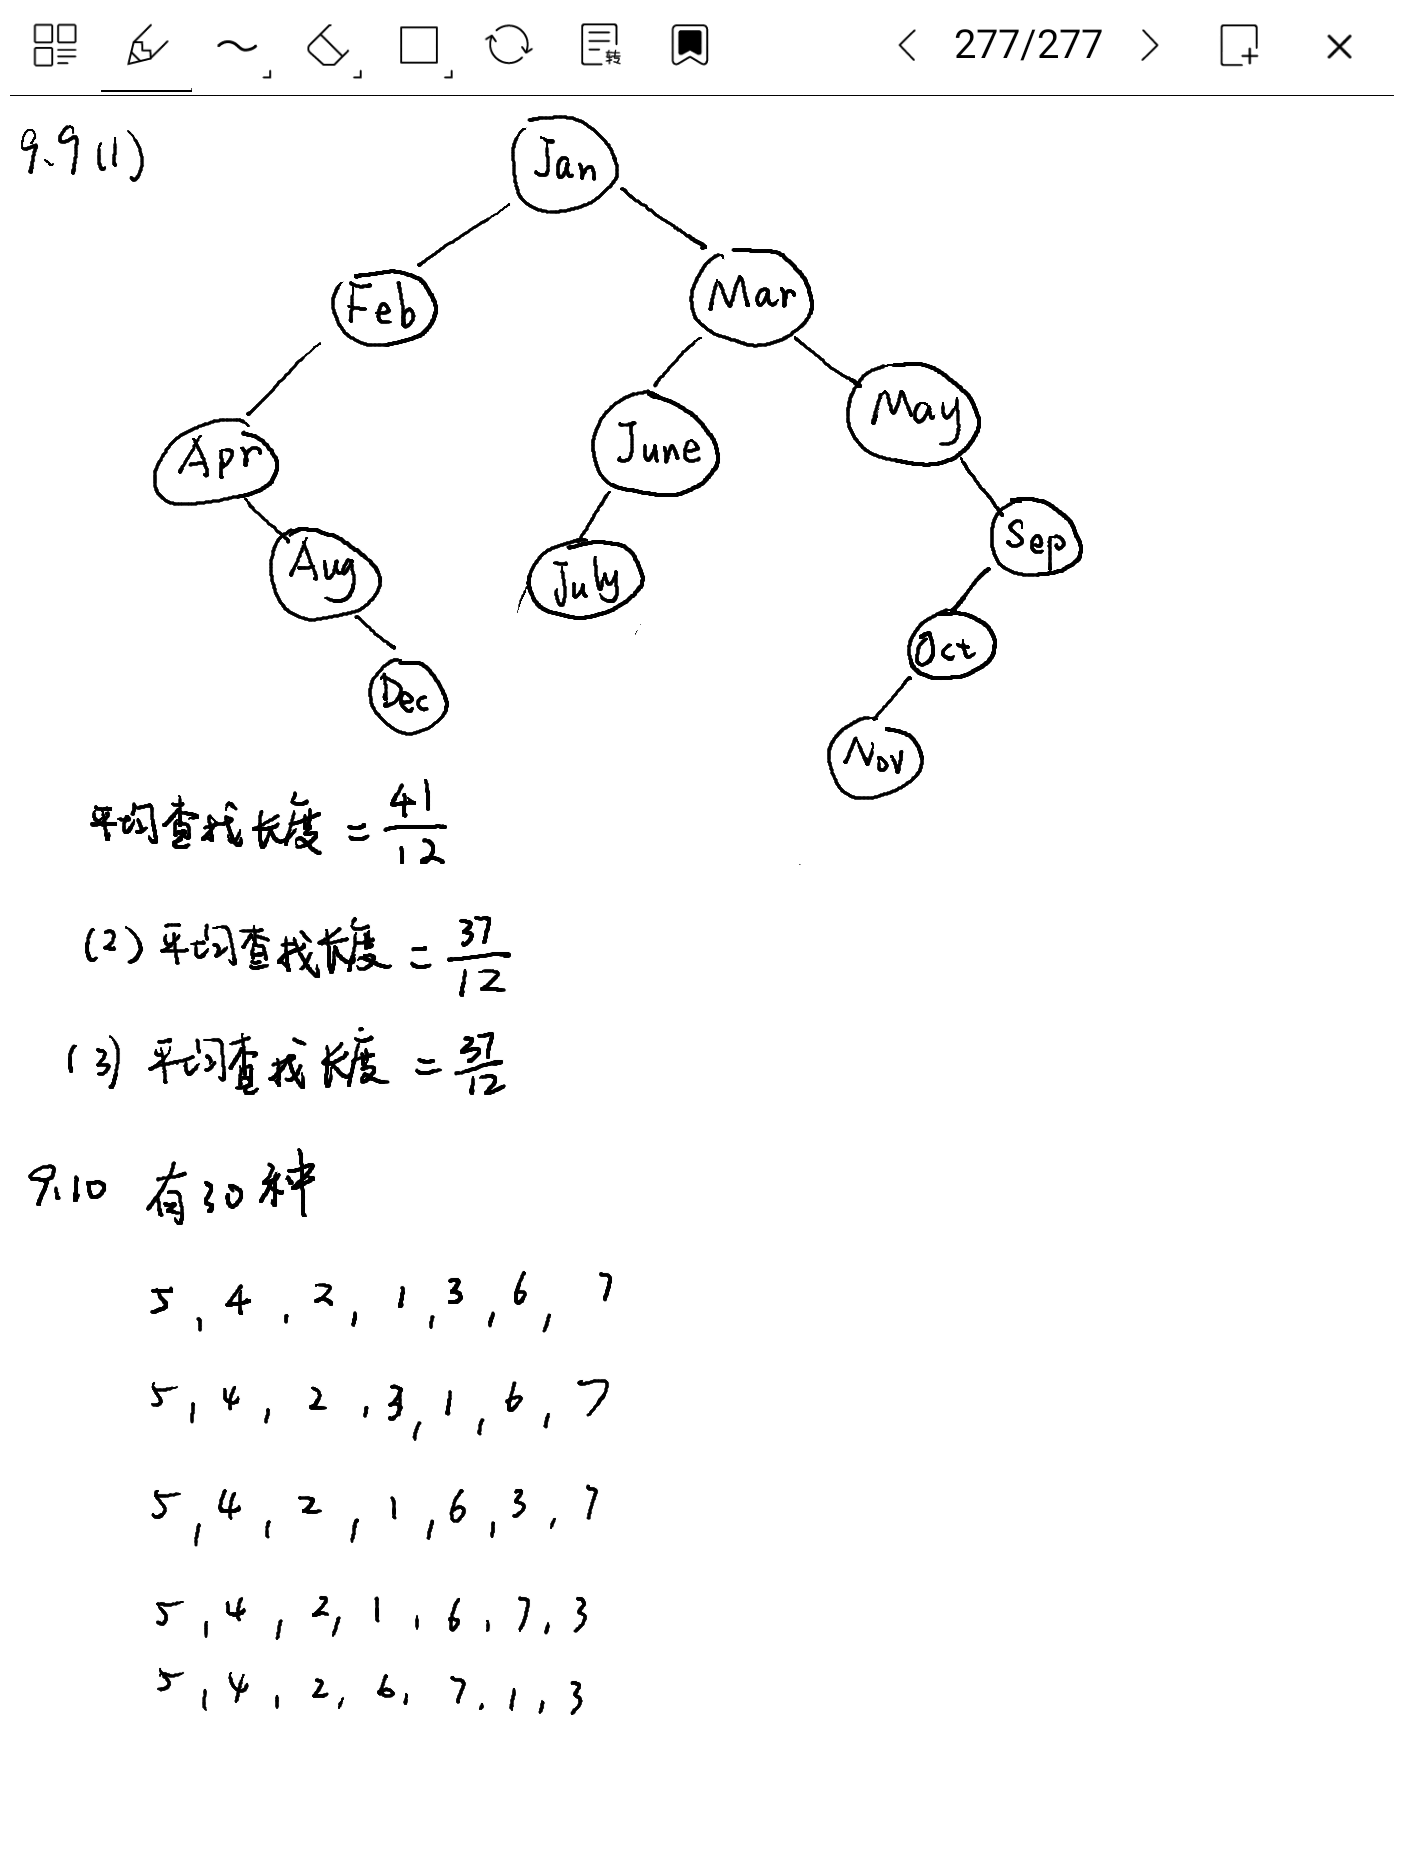 转
277/277
9.9 (1)
Jan
Feb
Mar
Apr
June
May
Aug
July
Sep
Dec
Oct
Nov
平均查找长度 = 41/12
(2) 平均查找长度 = 37/12
(3) 平均查找长度 = 37/12
9.10 有30种
5, 4, 2, 1, 3, 6, 7
5, 4, 2, 3, 1, 6, 7
5, 4, 2, 1, 6, 3, 7
5, 4, 2, 1, 6, 7, 3
5, 4, 2, 6, 7, 1, 3